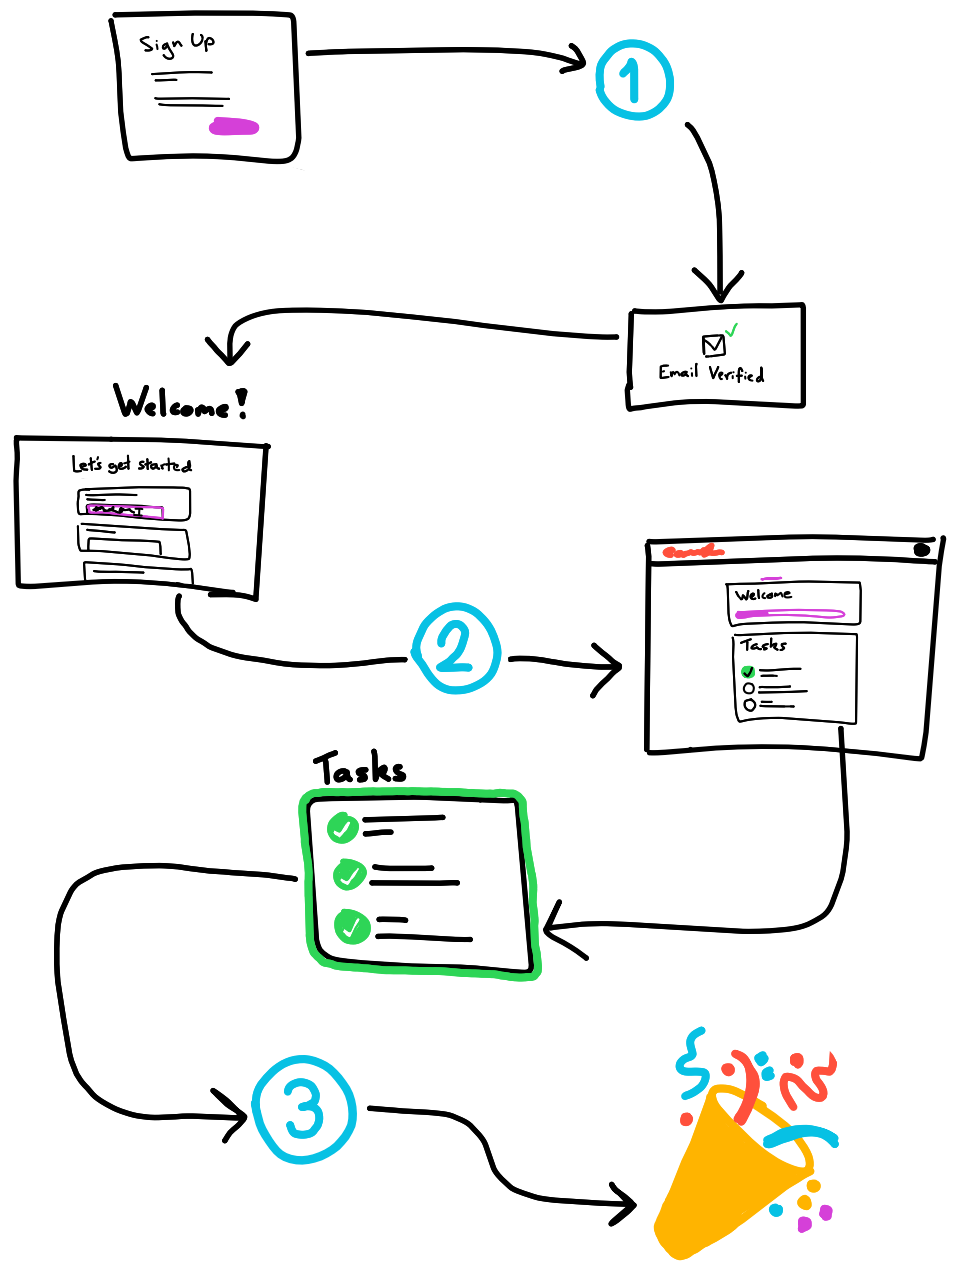 Sign Up
1
Email Verified
Welcome!
Let's get started
2
Welcome
Tasks
Tasks
3